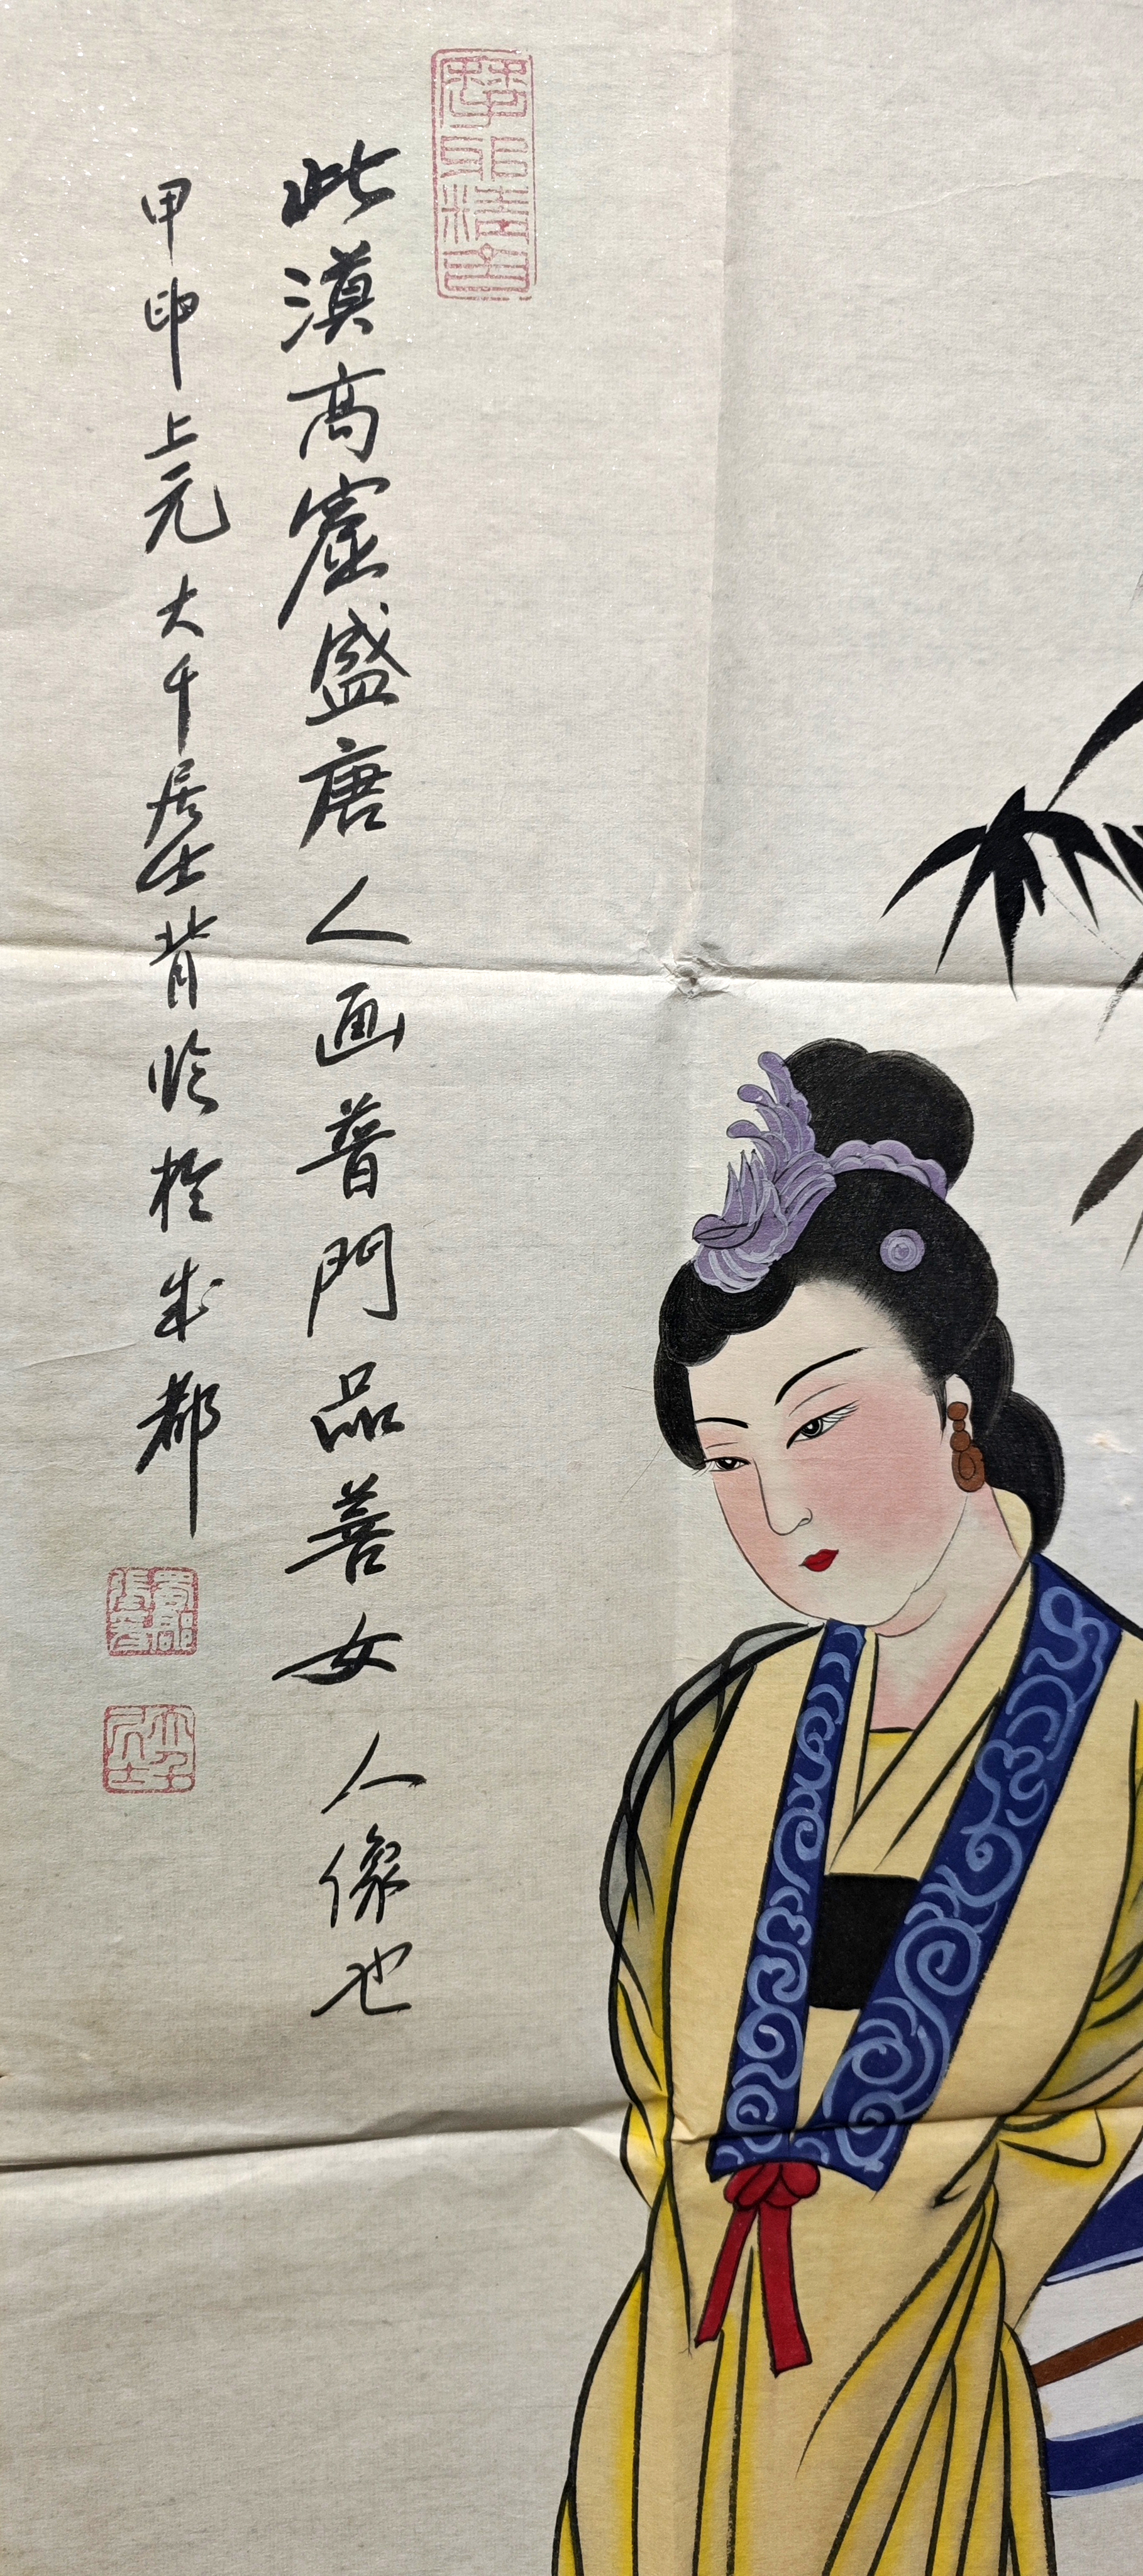 此漠高窟盛唐人画普門品善女人像也
甲申上元大千居士背临于成都
大千居士